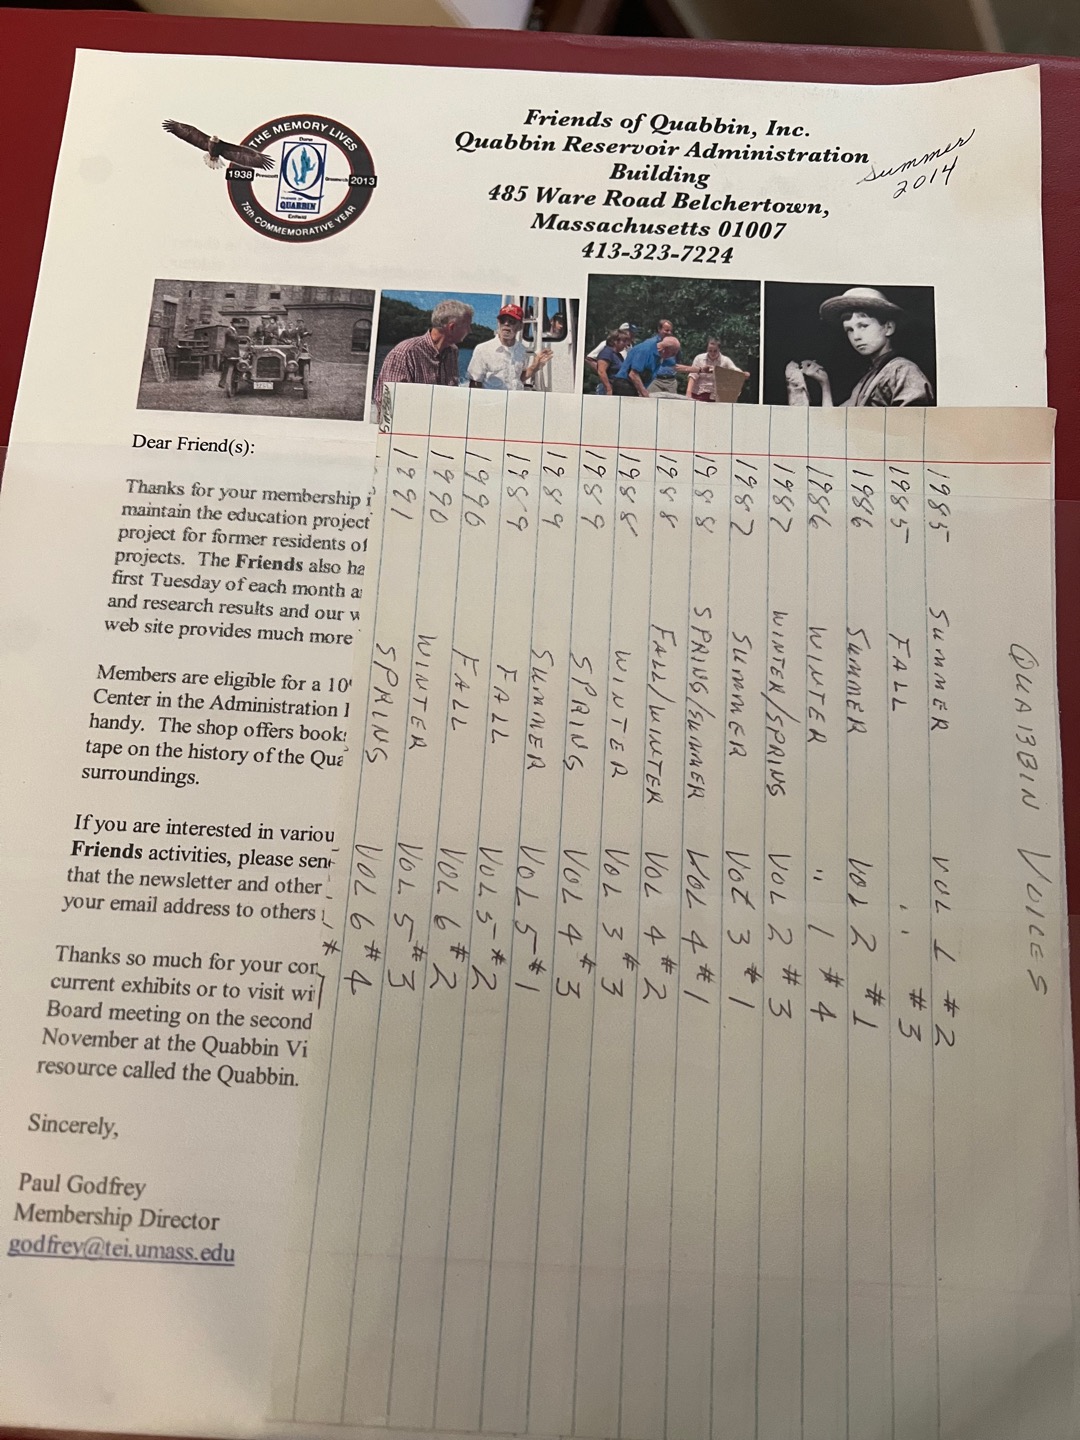 THE MEMORY LIVES
1938 Prescott Dana Greenwich 2013
QUABBIN
Enfield
75th COMMEMORATIVE YEAR
Friends of Quabbin, Inc.
Quabbin Reservoir Administration
Building
485 Ware Road Belchertown,
Massachusetts 01007
413-323-7224
Summer
2014
Dear Friend(s):
Thanks for your membership i
maintain the education project
project for former residents of
projects. The Friends also ha
first Tuesday of each month a
and research results and our w
web site provides much more
Members are eligible for a 10
Center in the Administration
handy. The shop offers book
tape on the history of the Qua
surroundings.
If you are interested in variou
Friends activities, please sen
that the newsletter and other
your email address to others
Thanks so much for your con
current exhibits or to visit wi
Board meeting on the second
November at the Quabbin Vi
resource called the Quabbin.
Sincerely,
Paul Godfrey
Membership Director
godfrey@tei.umass.edu
QUABBIN VOICES
1985 SUMMER VOL 1 #2
1985 FALL " #3
1986 SUMMER VOL 2 #1
1986 WINTER " 1 #4
1987 WINTER/SPRING VOL 2 #3
1987 SUMMER VOL 3 #1
1988 SPRING/SUMMER VOL 4 #1
1988 FALL/WINTER VOL 4 #2
1988 WINTER VOL 3 #3
1989 SPRING VOL 4 #3
1989 SUMMER VOL 5 #1
1989 FALL VOL 5 #2
1990 FALL VOL 6 #2
1990 WINTER VOL 5 #3
1991 SPRING VOL 6 #4